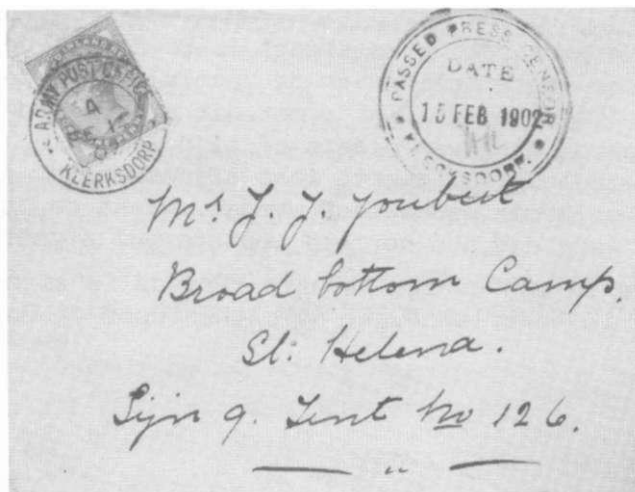 ARMY POST OFFICE
KLERKSDORP
PASSED PRESS CENSOR
DATE
15 FEB 1902
KLERKSDORP.
Mr J. J. Joubert
Broad bottom Camp.
St: Helena.
Lijn 9. Tent No 126.